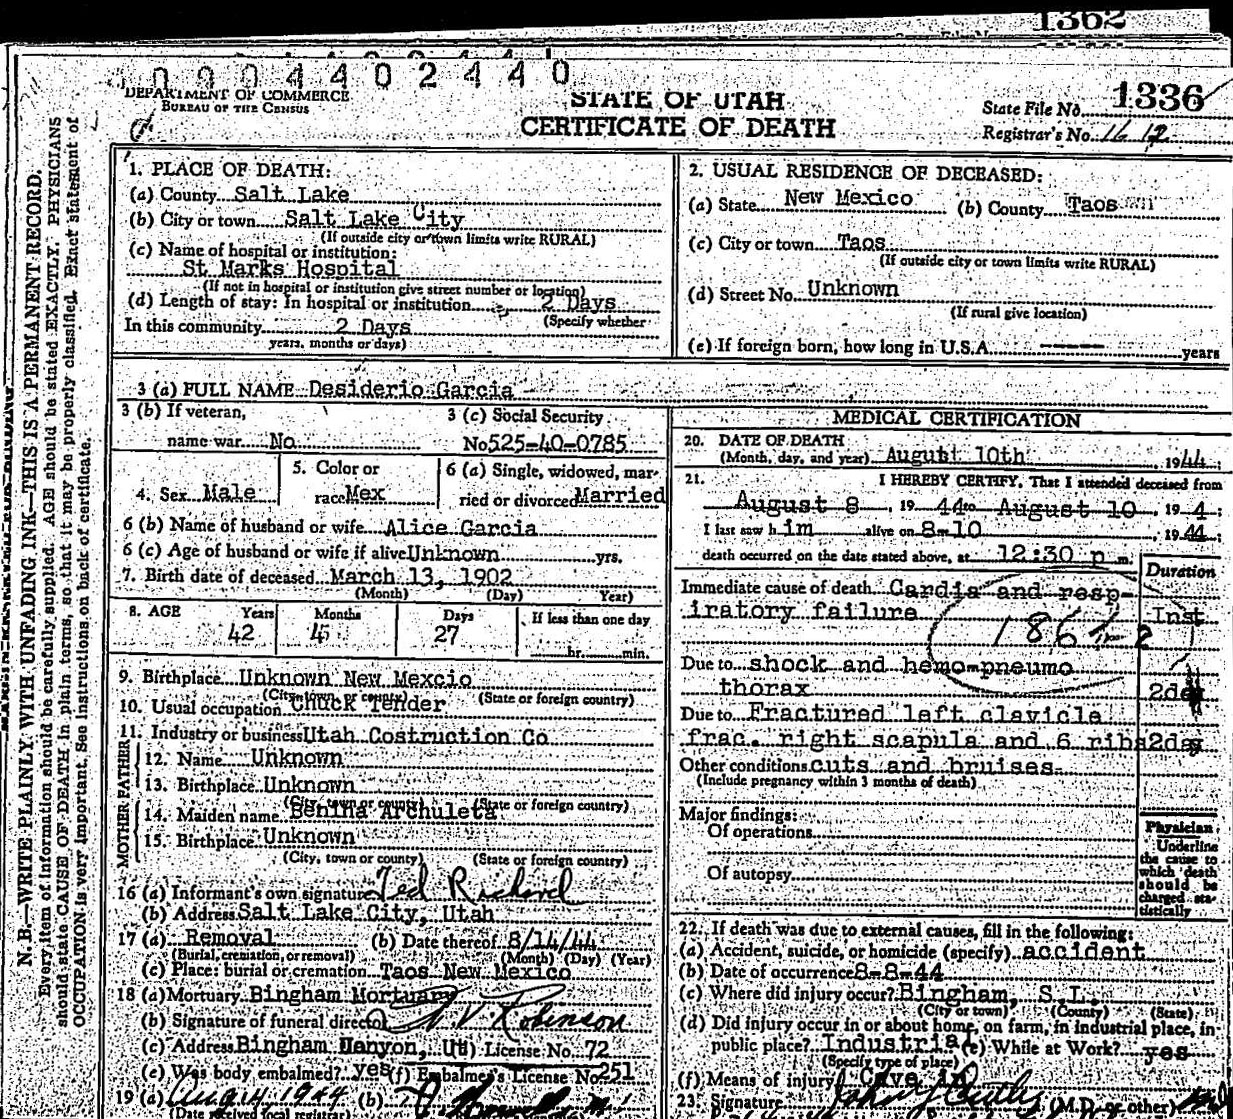 1362
0 0 0 4 4 0 2 4 4 0
DEPARTMENT OF COMMERCE
BUREAU OF THE CENSUS
STATE OF UTAH
CERTIFICATE OF DEATH
State File No. 1336
Registrar's No. 1612
N. B.—WRITE PLAINLY WITH UNFADING INK—THIS IS A PERMANENT RECORD.
Every item of information should be carefully supplied. AGE should be stated EXACTLY. PHYSICIANS
should state CAUSE OF DEATH in plain terms, so that it may be properly classified. Exact statement of
OCCUPATION is very important. See instructions on back of certificate.
1. PLACE OF DEATH:
(a) County Salt Lake
(b) City or town Salt Lake City
(If outside city or town limits write RURAL)
(c) Name of hospital or institution:
St Marks Hospital
(If not in hospital or institution give street number or location)
(d) Length of stay: In hospital or institution 2 Days
(Specify whether
In this community 2 Days
years, months or days)
2. USUAL RESIDENCE OF DECEASED:
(a) State New Mexico (b) County Taos
(c) City or town Taos
(If outside city or town limits write RURAL)
(d) Street No. Unknown
(If rural give location)
(e) If foreign born, how long in U.S.A. ---- years
3 (a) FULL NAME Desiderio Garcia
3 (b) If veteran,
name war No
3 (c) Social Security
No 525-40-0785
4. Sex Male
5. Color or
race Mex
6 (a) Single, widowed, mar-
ried or divorced Married
6 (b) Name of husband or wife Alice Garcia
6 (c) Age of husband or wife if alive Unknown yrs.
7. Birth date of deceased March 13, 1902
(Month) (Day) Year)
8. AGE Years Months Days If less than one day
42 4 27 hr. min.
9. Birthplace Unknown New Mexcio
(City, town, or county) (State or foreign country)
10. Usual occupation Chuck Tender
11. Industry or business Utah Costruction Co
FATHER
12. Name Unknown
13. Birthplace Unknown
(City, town or county) (State or foreign country)
MOTHER
14. Maiden name Benina Archuleta
15. Birthplace Unknown
(City, town or county) (State or foreign country)
16 (a) Informant's own signature Ted Richard
(b) Address Salt Lake City, Utah
17 (a) Removal (b) Date thereof 8/14/44
(Burial, cremation, or removal) (Month) (Day) (Year)
(c) Place: burial or cremation Taos New Mexico
18 (a) Mortuary Bingham Mortuary
(b) Signature of funeral director Robinson
(c) Address Bingham Canyon, Ut) License No. 72
(e) Was body embalmed? yes (f) Embalmer's License No. 251
19 (a) Aug 14 1944 (b)
(Date received local registrar)
MEDICAL CERTIFICATION
20. DATE OF DEATH
(Month, day, and year) August 10th, 1944;
21. I HEREBY CERTIFY, That I attended deceased from
August 8, 1944 to August 10, 194;
I last saw him alive on 8-10, 1944;
death occurred on the date stated above, at 12:30 p m.
Duration
Immediate cause of death Cardia and resp-
iratory failure Inst
186
2
Due to shock and hemo-pneumo
thorax
Due to Fractured left clavicle
frac. right scapula and 6 ribs 2day
Other conditions cuts and bruises
(Include pregnancy within 3 months of death)
Major findings:
Of operations
Of autopsy
Physician
Underline
the cause to
which death
should be
charged sta-
tistically
22. If death was due to external causes, fill in the following:
(a) Accident, suicide, or homicide (specify) accident
(b) Date of occurrence 8-8-44
(c) Where did injury occur? Bingham, S.L.
(City or town) (County) (State)
(d) Did injury occur in or about home, on farm, in industrial place, in
public place? Industrial (e) While at Work? yes
(Specify type of place)
(f) Means of injury Cave in
23. Signature (M.D. or other)